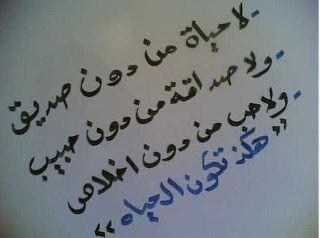 .لا حياة من دون صديق
.ولا صداقة من دون حبيب
.ولا حب من دون اخلاص
"هكذ تكون الحياه"